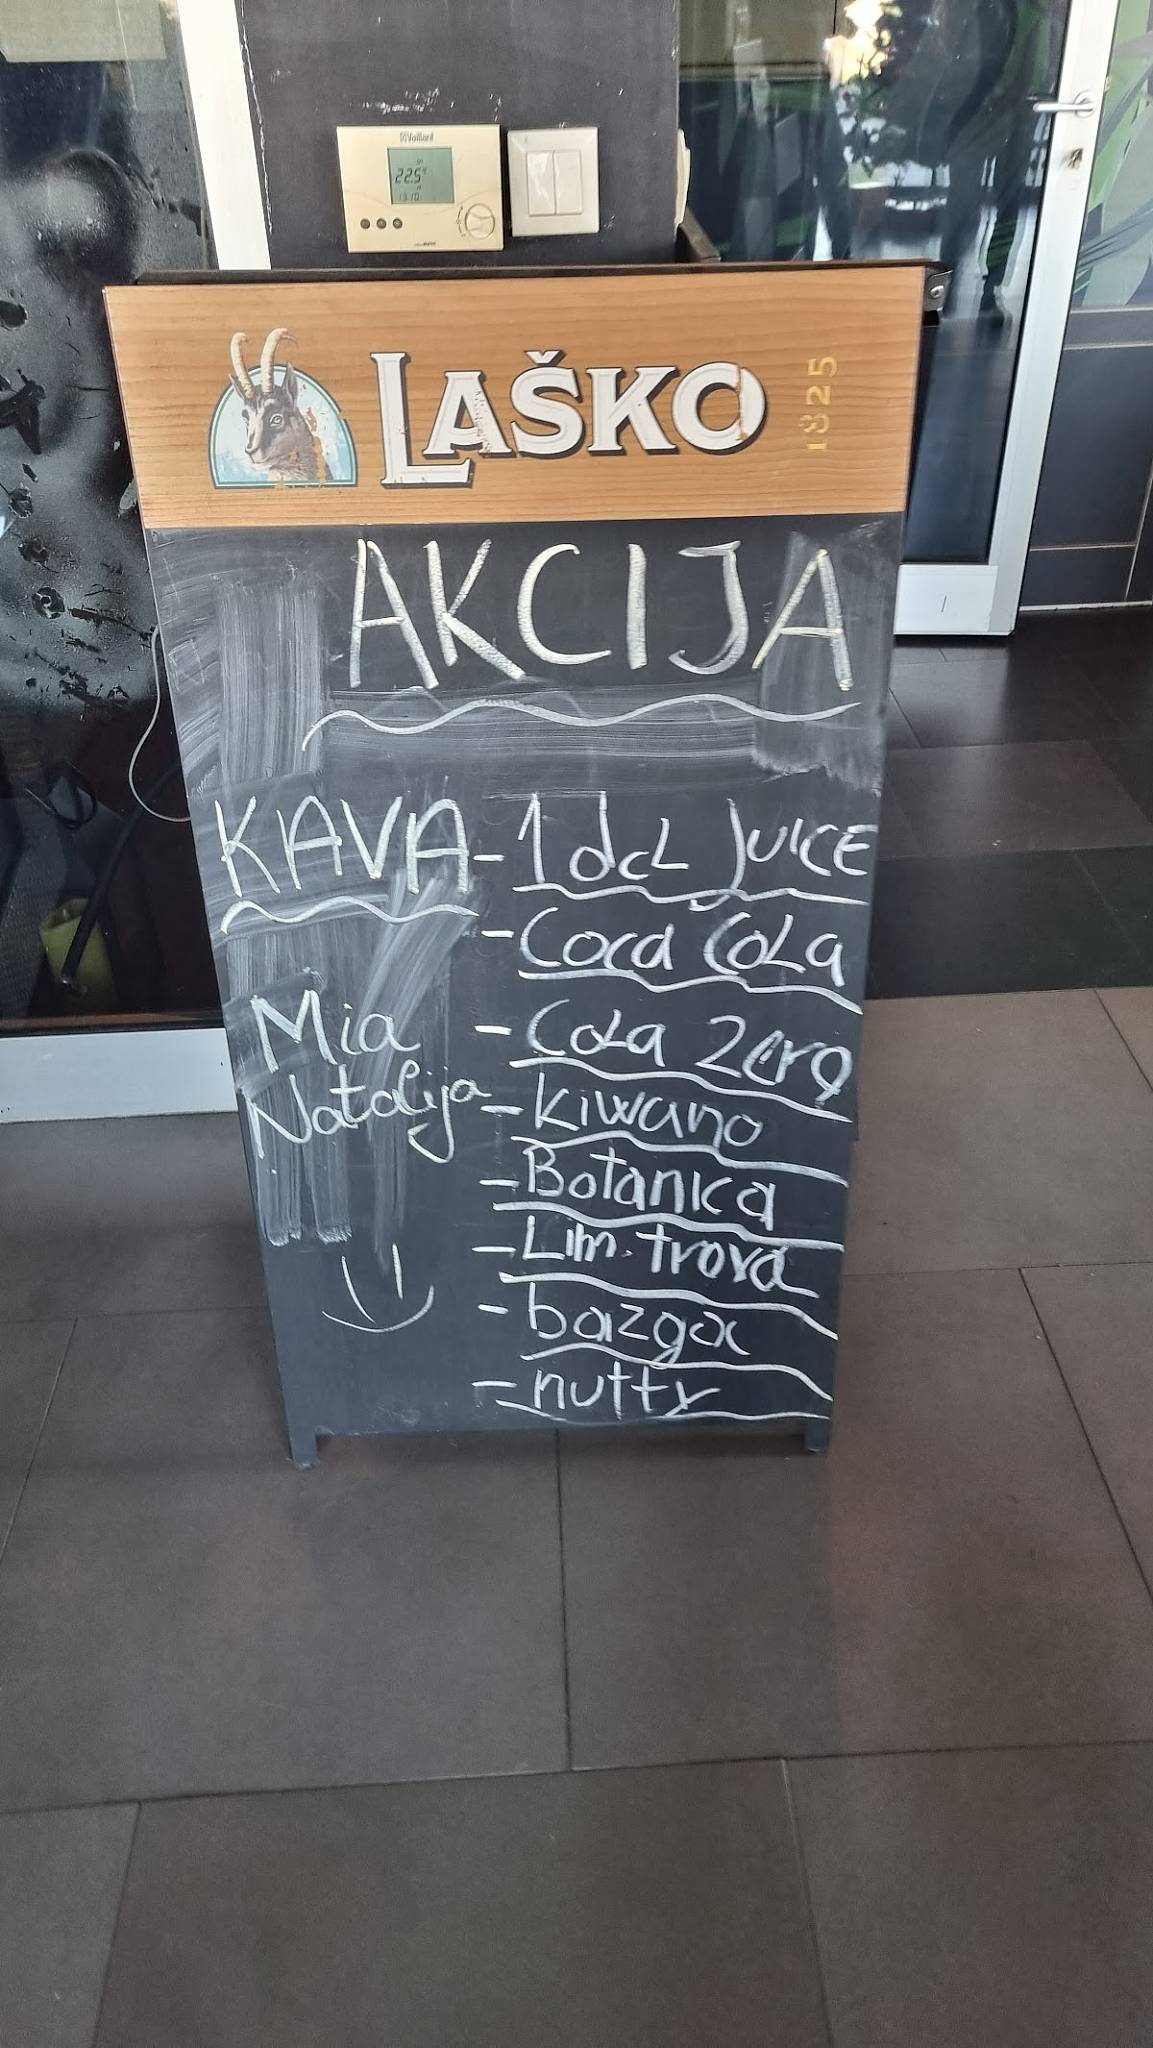 Vaillant
22.5°
13:10
LAŠKO 1825
AKCIJA
KAVA - 1 dcL JUICE
- Coca Cola
Mia
- Cola Zero
Natalija
- kiwano
- Botanica
- Lim. trava
- bazga
- nutty